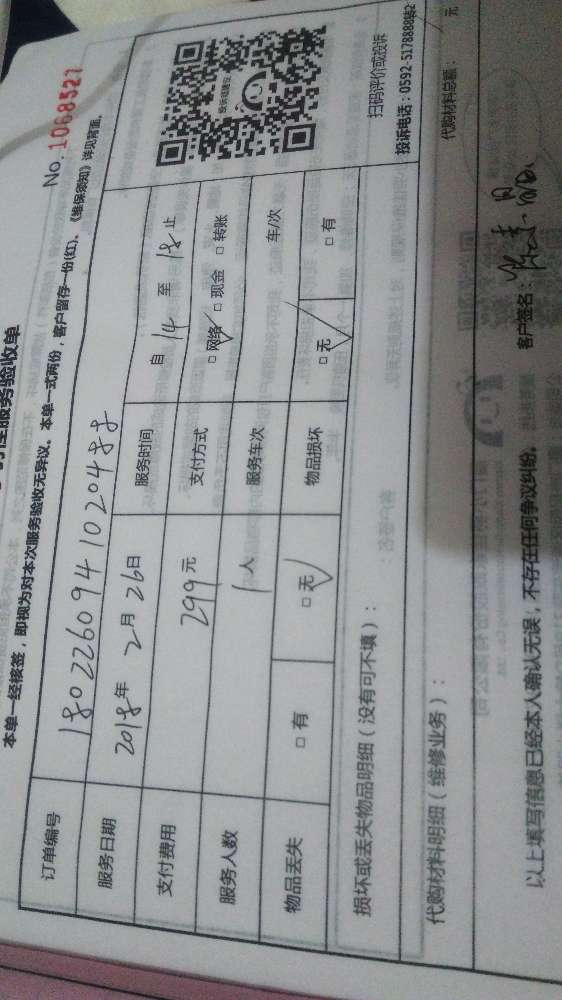 性服务验收单
No. 1068527
本单一经核签，即视为对本次服务验收无异议。本单一式两份，客户留存一份(红)、《维保须知》详见背面。
订单编号 1802260941020488
服务日期 2018年 2月 26日 服务时间 自 14 至 18 止
支付费用 299元 支付方式 □网络 □现金 □转账
服务人数 1人 服务车次 车/次
物品丢失 □有 □无 物品损坏 □无 □有
扫码评价或投诉
投诉电话：0592-5178888转2
损坏或丢失物品明细（没有可不填）：
代购材料明细（维修业务）：
代购材料总额： 元
以上填写信息已经本人确认无误，不存在任何争议纠纷。 客户签名：